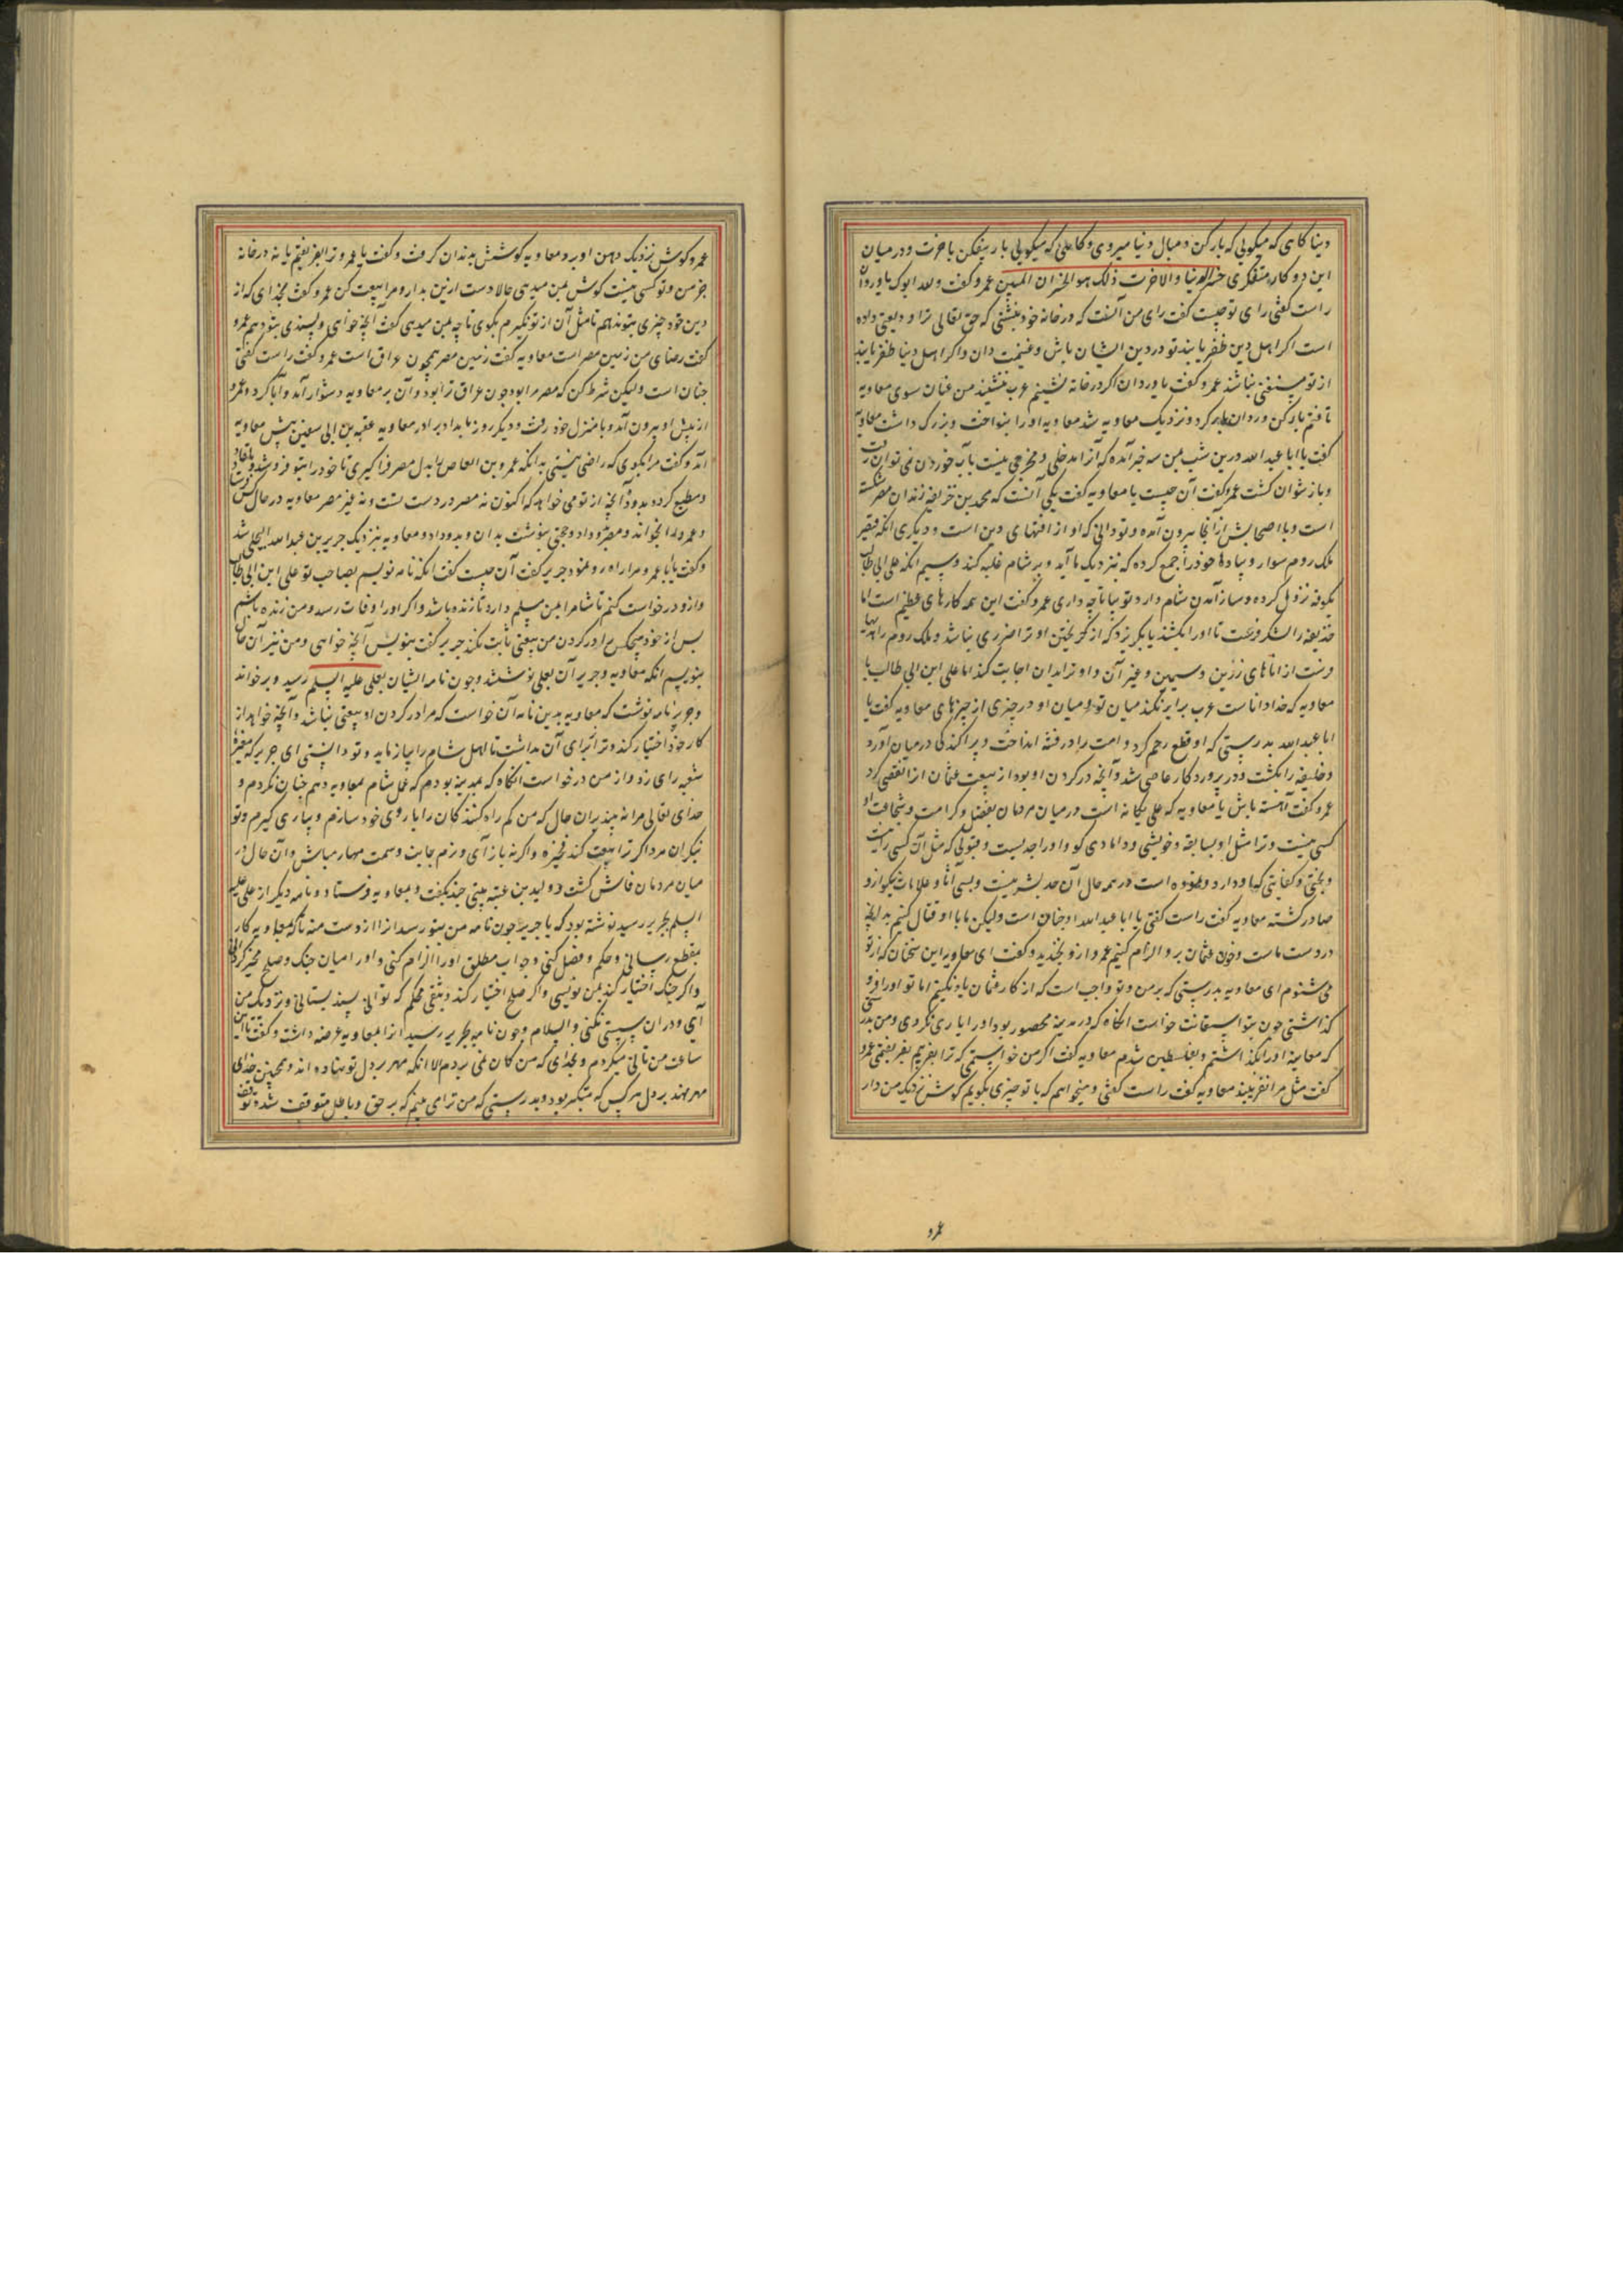 دنیا کاهی که میکویی که بار کن دنبال دنیا میروی و کاه علی که میکویی بار بیفکن باخرت و در میان
این دو کار متفکری خسر الدنیا والاخرت ذلک هو الخسران المبین عمرو کفت ولله ابوک یا وردان
راست کفتی رای تو چیست کفت رای من آنست که در خانه خود بنشینی که حق تعالی ترا ودیعتی داده
است اکر اهل دین ظفر یابند تو در دین ایشان باش و غنیمت دان واکر اهل دنیا ظفر یابند
از تو مستغنی نباشند عمرو کفت یا وردان اکر در خانه نشینم عرب ننشینند من عنان سوی معاویه
تافتم بار کن وردان بار کرد و نزدیک معاویه شد معاویه او را بنواخت و بزرک داشت معاویه
کفت یا ابا عبد الله درین شب بمن سه خبر آمده که آنرا مدخلی و مخرجی نیست بآب خوردن نمی توان رفت
و باز نتوان کشت عمرو کفت آن چیست یا معاویه کفت یکی آنست که محمد بن حذیفه زندان مصر شکسته
است و با اصحابش از آنجا بیرون آمده و تو دانی که او از افتهای دین است و دیکری انکه قیصر
ملک روم سوار و پیاده خود را جمع کرده که بنزدیک ما آید و بر شام غلبه کند وسیم انکه علی ابی طالب
بکوفه نزول کرده و ساز آمدن شام دارد تو بیا تا چه داری عمرو کفت این همه کارهای عظیم است اما
حذیفه را لشکر فرست تا او را بکشند یا بکریزد که از کریختن او ترا ضرری نباشد و ملک روم را هدیه
فرست از اناهای زرین و سیمین و غیر آن و او ترا بدان اجابت کند اما علی ابن ابی طالب یا
معاویه که خدا داناست عرب برابر نکند میان تو و میان او در چیزی از چیزهای معاویه کفت یا
ابا عبد الله بدرستی که او قطع رحم کرد و امت را در فتنه انداخت و پراکندکی در میان آورد
و خلیفه را بکشت و در پروردکار عاصی شد و آنچه در کردن او بود از بیعت عثمان انرا نقض کرد
عمرو کفت آهسته باش یا معاویه که علی یکانه است در میان مردمان بفضل و کرامت و شجاعت او
کسی نیست و ترا مثل او سابقه و خویشی و دامادی کو و او را جدیست و قبولی که مثل آن کسی را نیست
و بختی و کفایتی که او دارد و بوده است در همه حال آن حد بشر نیست و بسی آثار و علامات نیکو ازو
صادر کشته معاویه کفت راست کفتی یا ابا عبد الله او چنان است ولیکن ما با او قتال کنیم بدانچه
در دست ماست و خون عثمان برو الزام کنیم عمرو ازو بخندید و کفت ای معاویه این سخنان که از تو
می شنوم ای معاویه بدرستی که بر من و تو واجب است که از کار عثمان یاد نکنیم اما تو او را فرو
کذاشتی چون بتو استعانت خواست انکاه که در مدینه محصور بود او را یاری نکردی و من بدرستی
که معاینه او را بکذاشتم و بفلسطین شدم معاویه کفت اکر من خواستمی که ترا بفریبم بفریفتمی عمرو
کفت مثل مرا نفریبند معاویه کفت راست کفتی و میخواهم که با تو چیزی بکویم کوش نزدیک من دار
عمرو
عمرو کوش نزدیک دهن او برد معاویه کوشش بدندان کرفت و کفت یا عمرو ترا بفریفتم یا نه در خانه
جز من و تو کسی نیست کوش بمن میدهی حالا دست ازین بدار و مرا بیعت کن عمرو کفت بخدای که از
دین خود چیزی بتو ندهم تا مثل آن از تو نکیرم بکوی تا چه بمن میدهی کفت آنچه خواهی و پسندی بتو دهم عمرو
کفت رضای من زمین مصر است معاویه کفت زمین مصر همچون عراق است عمرو کفت راست کفتی
چنان است ولیکن شرط کن که مصر مرا بود چون عراق ترا بود و آن بر معاویه دشوار آمد و ابا کرد و عمرو
از پیش او بیرون آمد و بمنزل خود رفت و دیکر روز بامداد برادر معاویه عقبه بن ابی سفین پیش معاویه
آمد و کفت مرا بکوی که راضی نیستی به انکه عمرو بن العاص را بدل مصر فرا کیری تا خود را بتو فروشد و منقاد
و مطیع کردد بدو ده آنچه از تو می خواهد که اکنون نه مصر در دست تست و نه غیر مصر معاویه در حال کس فرستاد
و عمرو را بخواند و مصر بدو داد و حجتی بنوشت بدان و بدو داد و معاویه بنزدیک جریر بن عبد الله البجلی شد
و کفت یا با عمرو مرا راه رو نمود جریر کفت آن چیست کفت انکه نامه نویسم بصاحب تو علی ابن ابی طالب
و ازو درخواست کنم تا شام را بمن مسلم دارد تا زنده باشد و اکر او را وفات رسد و من زنده باشم
پس از خود هیچکس را در کردن من بیعتی ثابت نکند جریر کفت بنویس آنچه خواهی و من نیز آن حال
بنویسم انکه معاویه و جریر آن بعلی نوشتند و چون نامه ایشان بعلی علیه السلم رسید و برخواند
و جریر نامه نوشت که معاویه بدین نامه آن خواست که مرا در کردن او بیعتی نباشد و آنچه خواهد از
کار خود اختیار کند و ترا برای آن بداشت تا اهل شام را بیازماید و تو دانستی ای جریر که مغیره
شعبه رای زد و از من درخواست انکاه که بمدینه بودم که عمل شام بمعاویه دهم چنان نکردم و
خدای تعالی مرا نه بیند بران حال که من کم راه کنندکان را یاروی خود سازم و بیاری کیرم و تو
نیکران مرد اکر ترا بیعت کند فخیره واکر نه باز آی و نرم جانب و سست مهار مباش و آن حال در
میان مردمان فاش کشت و ولید بن عقبه بیتی چند بکفت و بمعاویه فرستاد و نامه دیکر از علی علیه
السلم بجریر رسید نوشته بود که یا جریر چون نامه من بتو رسد انرا از دست منه تا که معاویه کار
بقطع رسانی و حکم و فصل کنی و جواب مطلق او را الزام کنی و او را میان جنک و صلح مخیر کردانی
واکر جنک اختیار کند بمن نویسی واکر صلح اختیار کند وثیقتی محکم که توانی پسند بستانی و نزدیک من
آی و دران سستی نکنی والسلام و چون نامه بجریر رسید انرا بمعاویه عرضه داشت و کفت تا این
ساعت من تانی میکردم و بخدای که من کمان نمی بردم الا انکه مهر بر دل تو نهاده اند و همچنین خدای
مهر نهد بر دل هر کس که متکبر بود و بدرستی که من ترا می بینم که بر حق و باطل متوقف شده تو